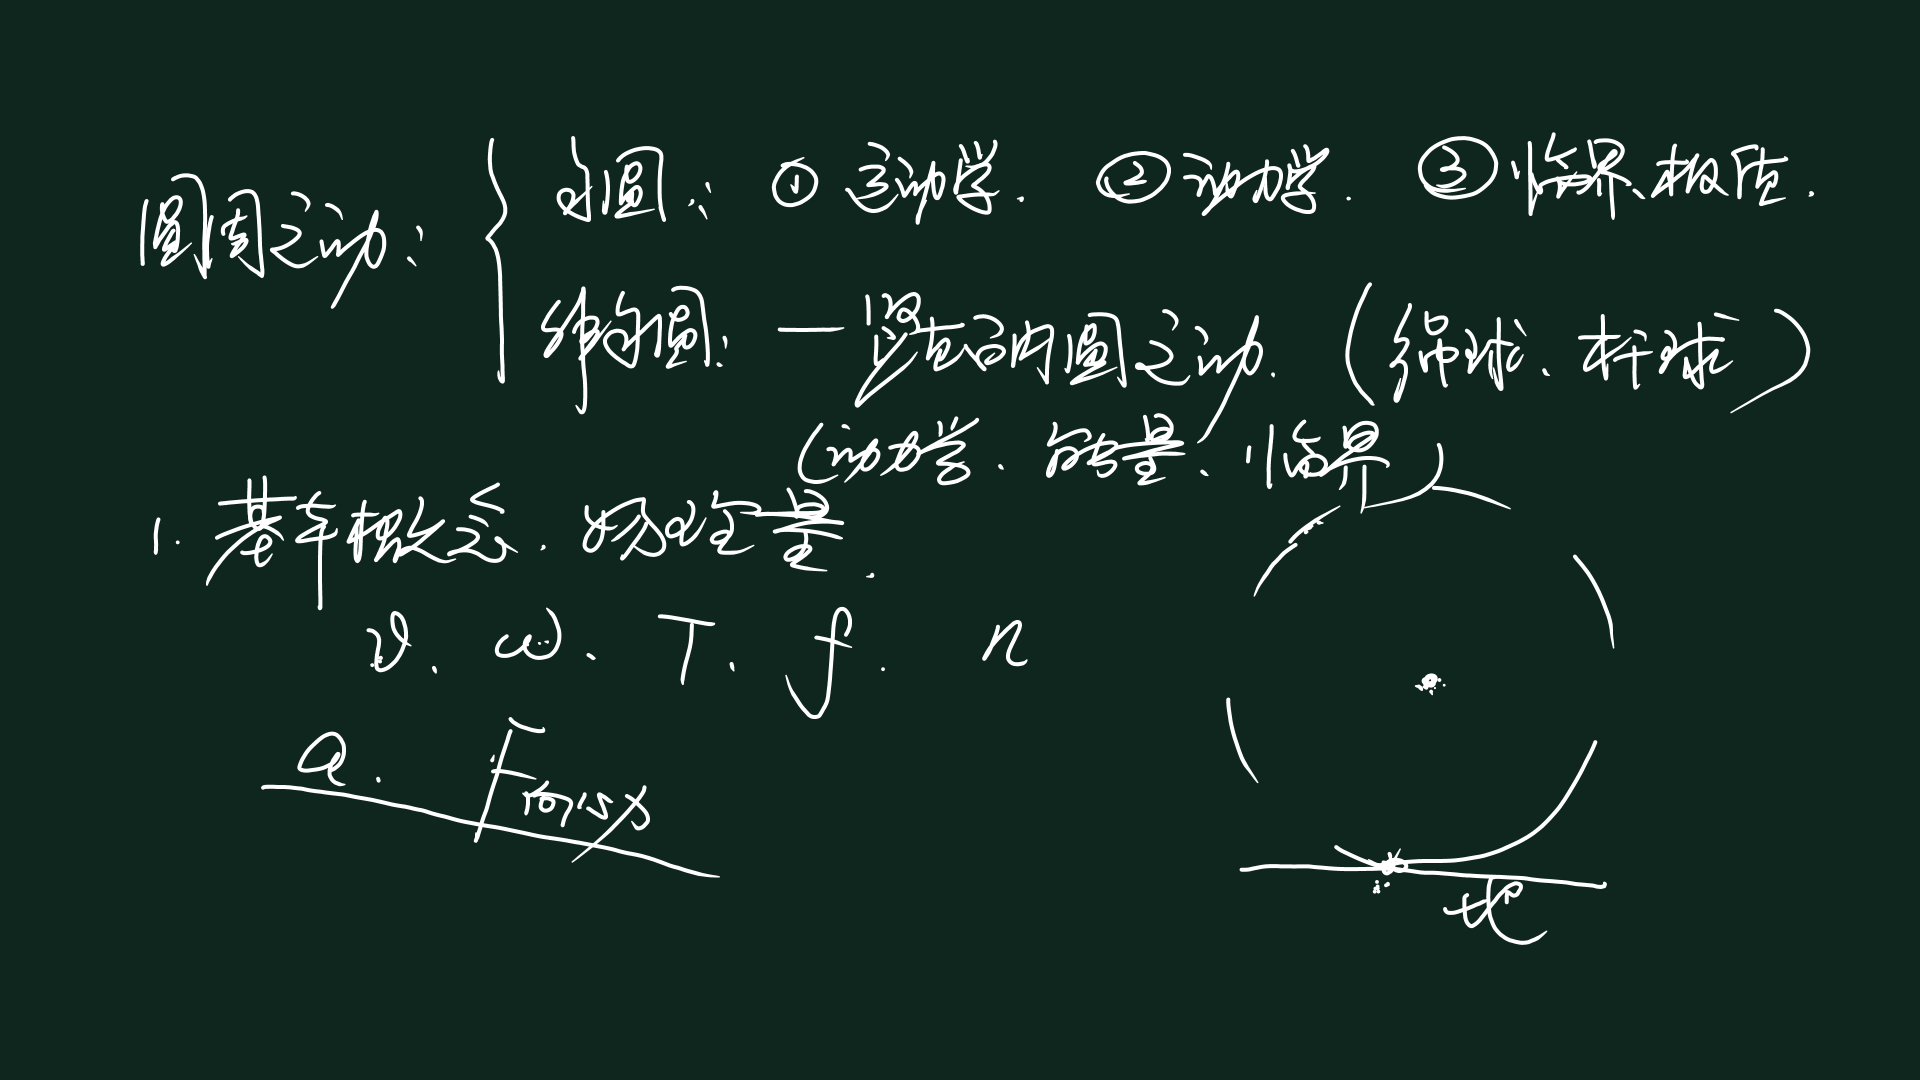 圆周运动：
匀圆：① 运动学. ② 动力学. ③ 临界、极值.
非匀圆：一竖直面内圆运动. (绳球、杆球)
(动力学、能量、临界)
1. 基本概念、物理量.
v、ω、T、f、n
a、F向心力
地